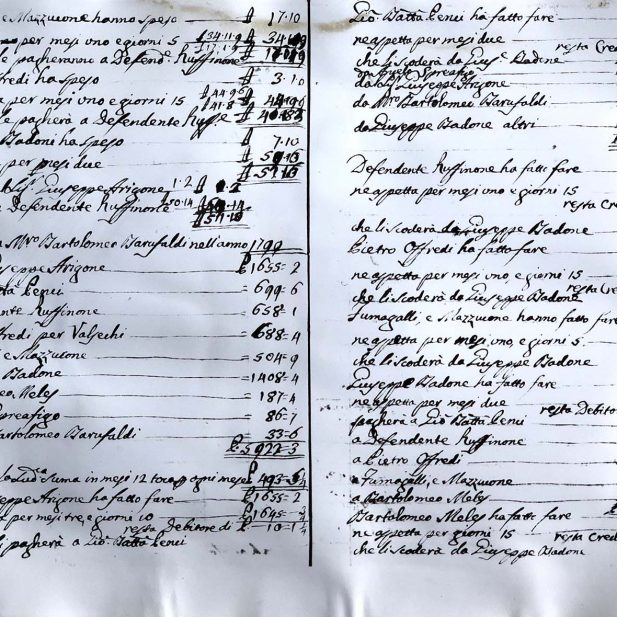 e Mazzucone hanno speso 17.10
per mesi uno e giorni 5
le pagheranno a Defend.e Ruffinone
fredi ha speso 3.10
a per mesi uno e giorni 15
e pagherà a Defendente Ruff.e
Badoni ha speso 7.10
per mesi due
Giuseppe Arigone 1.2
e Defendente Ruffinone 50.14
a M.ro Bartolomeo Barufaldi nell'anno 1799
useppe Arigone £ 1655=2
tta Cenci = 699=6
ente Ruffinone = 658=1
fredi per Valsechi = 688=4
e Mazzucone = 504=9
Badone = 1408=4
eo Meles = 187=4
preafigo = 86=7
artolomeo Barufaldi 33=6
£ 5922=3
Suma in mesi 12 tocca ogni mese £ 493=6
seppe Arigone ha fatto fare £ 1655=2
per mesi tre, e giorni 10 £ 1645
resta debitore di £ 10=1
li pagherà a Gio. Batta Cenci
Gio. Batta Cenci ha fatto fare
ne aspetta per mesi due
resta Cred
che li scoderà da Gius.e Badone
da Giuseppe Arigone
da M.ro Bartolomeo Barufaldi
da Giuseppe Badone altri
Defendente Ruffinone ha fatto fare
ne aspetta per mesi uno e giorni 15
resta Cred
che li scoderà da Giuseppe Badone
Pietro Offredi ha fatto fare
ne aspetta per mesi uno, e giorni 15
resta Cre
che li scoderà da Giuseppe Badone
Fumagalli, e Mazzucone hanno fatto fare
ne aspetta per mesi uno, e giorni 5
che li scoderà da Giuseppe Badone
Giuseppe Badone ha fatto fare
ne aspetta per mesi due
resta Debitor
pagherà a Gio. Batta Cenci
a Defendente Ruffinone
a Pietro Offredi
a Fumagalli, e Mazzucone
a Bartolomeo Meles
Bartolomeo Meles ha fatt fare
ne aspetta per giorni 15
resta Cred
che li scoderà da Giuseppe Badone